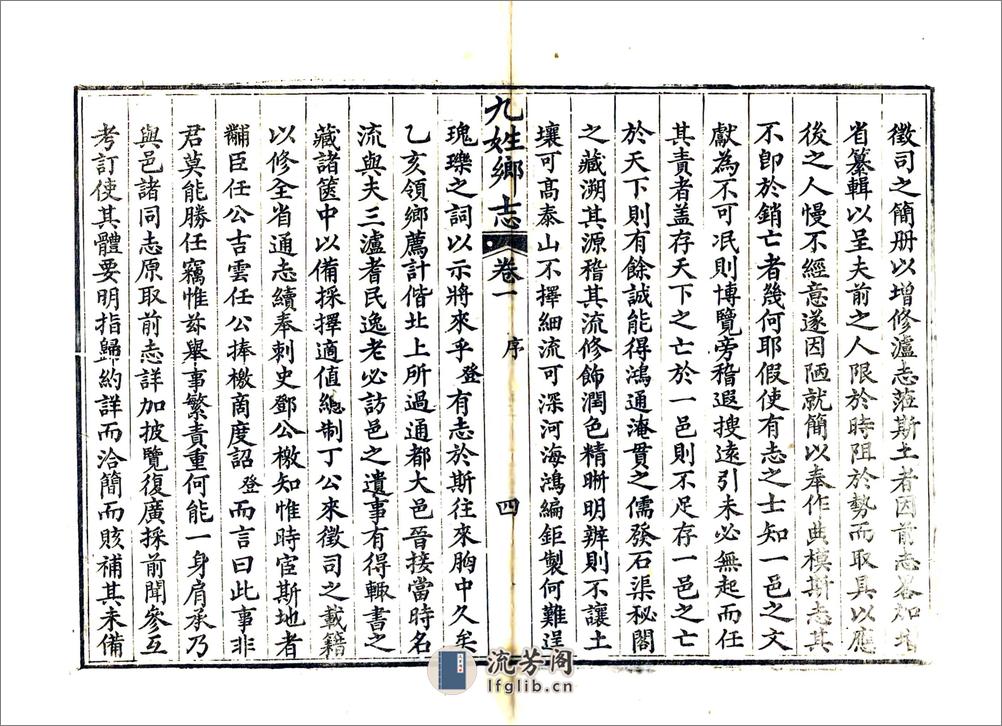 徵司之簡册以增修瀘志蒞斯土者因前志畧加增
省纂輯以呈夫前之人限於時阻於勢而取具以應
後之人慢不經意遂因陋就簡以奉作典模斯志其
不卽於銷亡者幾何耶假使有志之士知一邑之文
獻為不可泯則博覽旁稽遐搜遠引未必無起而任
其責者盖存天下之亡於一邑則不足存一邑之亡
於天下則有餘誠能得鴻通淹貫之儒發石渠秘閣
之藏溯其源稽其流修飾潤色精晰明辨則不讓土
壤可髙泰山不擇細流可深河海鴻編鉅製何難逞
九姓鄉志 卷一 序 四
瑰瓅之詞以示將來乎登有志於斯往來胸中久矣
乙亥領鄉薦計偕北上所過通都大邑晉接當時名
流與夫三瀘耆民逸老必訪邑之遺事有得輙書之
藏諸篋中以備採擇適值總制丁公來徵司之載籍
以修全省通志續奉刺史鄧公檄知惟時宦斯地者
黼臣任公吉雲任公捧檄商度詔登而言曰此事非
君莫能勝任竊惟玆舉事繁責重何能一身肩承乃
與邑諸同志原取前志詳加披覽復廣採前聞參互
考訂使其體要明指歸約詳而洽簡而賅補其未備
流芳阁
lfglib.cn